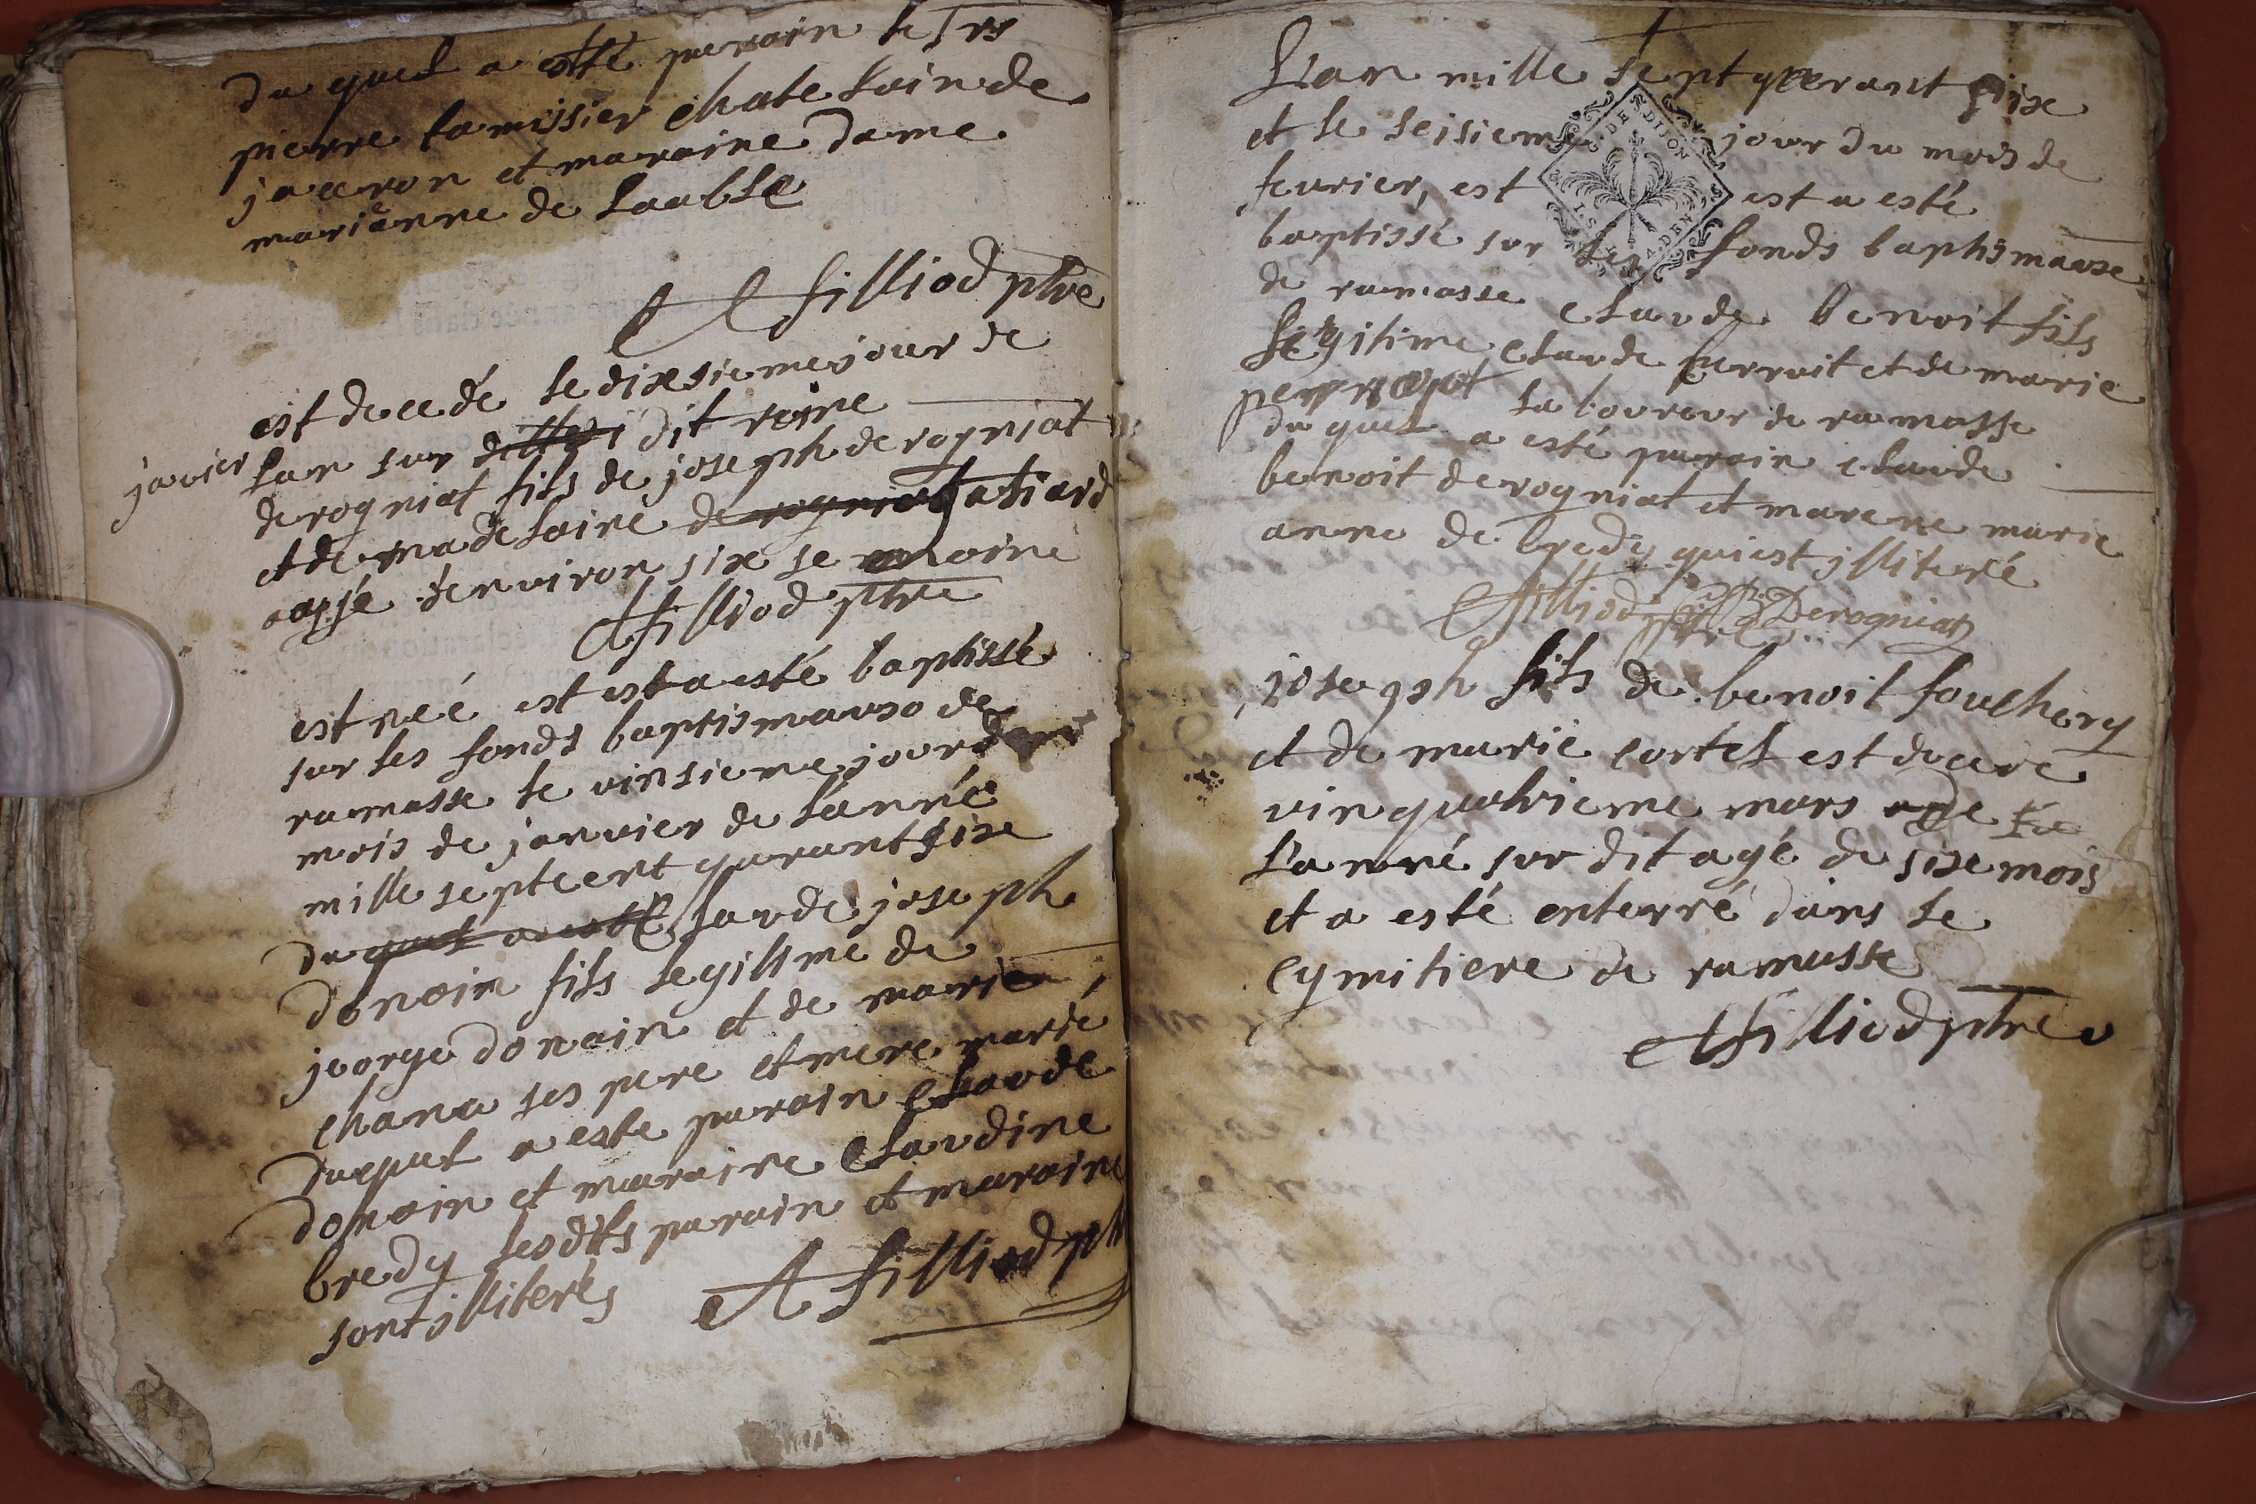 du quel a esté parrain le Srs
pierre tamissier chatelain de
jaceron et maraine dame
marianne de Laable
A filliod ptre
est decedé le dixsieme jour de
janvier lan sur dit reine
derogniat fils de joseph derogniat
et de madelaine de rogniat Jatiard
aagé denviron six semaine
A filliod ptre
est neé est est a esté baptissé
sur les fonds baptismauso de
ramasse le vinsieme jour
mois de janvier de lanné
mille septcent quarant sixe
du quel a esté laude joseph
donain fils legitime de
jeorge donain et de marie
chana ses pere et mere marié
duquel a este parain claude
donain et maraine claudine
bredy lesdits parain et maraine
sont jlliterés
A filliod ptr
L'an mille sept quarant sixe
et le seisieme jour du mois de
feurier, est est a esté
baptissé sur les fonds baptismauxe
de ramasse claude benoit fils
legitime claude perruit et de marie
laboureur de ramasse
du quel a esté parain claude
benoit derogniat et marene marie
anne de bredy qui est jlliteré
A filliod ptre Derogniat
joseph fils de benoit fouchery
et de marie cortet est
vinquatrieme mars
L'anné sur dit agé de sixe mois
et a esté enterré dans le
cymitiere de ramasse
A filliod ptre
G. DE DIJON